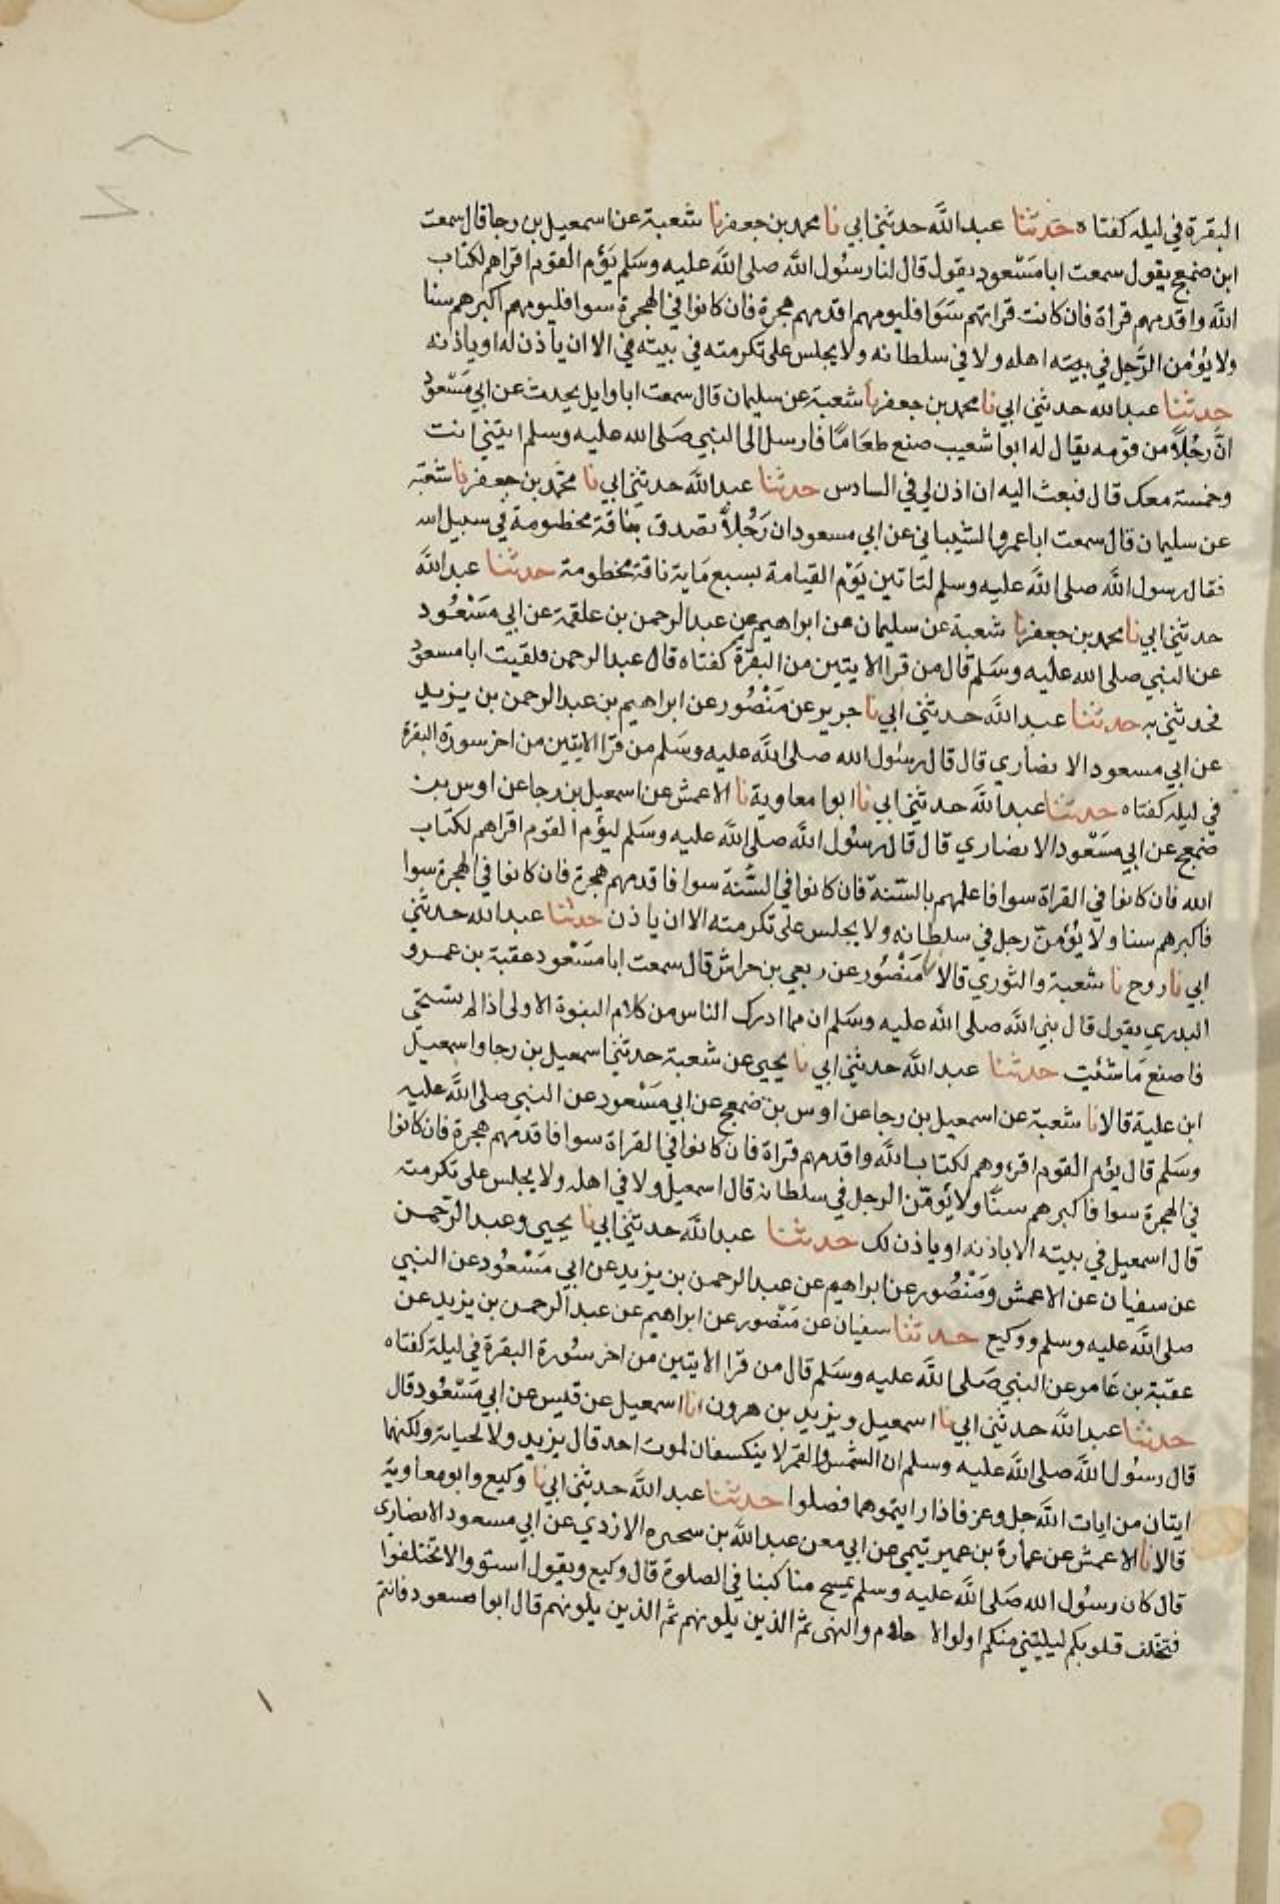 البقرة في ليله كفتاه حدثنا عبد الله حدثني ابي نا محمد بن جعفر نا شعبة عن اسمعيل بن رجا قال سمعت
ابن ضمعج يقول سمعت ابا مسعود يقول قال لنا رسول الله صلى الله عليه وسلم يؤم القوم اقراهم لكتاب
الله واقدمهم قراة فان كانت قراتهم سوا فليومهم اقدمهم هجرة فان كانوا في الهجرة سوا فليومهم اكبرهم سنا
ولا يؤمن الرجل في بيته اهله ولا في سلطانه ولا يجلس على تكرمته في بيته في الا ان يأذن له او ياذنه
حدثنا عبد الله حدثني ابي نا محمد بن جعفر نا شعبة عن سليمان قال سمعت ابا وايل يحدث عن ابي مسعود
ان رجلا من قومه يقال له ابوا شعيب صنع طعاما فارسل الى النبي صلى الله عليه وسلم ايتني انت
وخمسة معك قال فبعث اليه ان اذن لي في السادس حدثنا عبد الله حدثني ابي نا محمد بن جعفر نا شعبة
عن سليمان قال سمعت ابا عمرو الشيباني عن ابي مسعود ان رجلا تصدق بناقة مخطومة في سبيل الله
فقال رسول الله صلى الله عليه وسلم لتاتين يوم القيامة بسبع ماية ناقة مخطومة حدثنا عبد الله
حدثني ابي نا محمد بن جعفر نا شعبة عن سليمان عن ابراهيم عن عبد الرحمن بن علقمة عن ابي مسعود
عن النبي صلى الله عليه وسلم قال من قرا الايتين من البقرة كفتاه قال عبد الرحمن فلقيت ابا مسعود
فحدثني به حدثنا عبد الله حدثني ابي نا جرير عن منصور عن ابراهيم بن عبد الرحمن بن يزيد
عن ابي مسعود الانصاري قال قال رسول الله صلى الله عليه وسلم من قرا الايتين من اخر سورة البقرة
في ليله كفتاه حدثنا عبد الله حدثني ابي نا ابوا معاوية نا الاعمش عن اسمعيل بن رجا عن اوس بن
ضمعج عن ابي مسعود الانصاري قال قال رسول الله صلى الله عليه وسلم ليؤم القوم اقراهم لكتاب
الله فان كانوا في القراة سوا فاعلمهم بالسنة فان كانوا في السنة سوا فاقدمهم هجرة فان كانوا في الهجرة سوا
فاكبرهم سنا ولا يؤمن رجل في سلطانه ولا يجلس على تكرمته الا ان ياذن حدثنا عبد الله حدثني
ابي نا روح نا شعبة والثوري قالا نا منصور عن ربعي بن حراش قال سمعت ابا مسعود عقبة بن عمرو
البدري يقول قال نبي الله صلى الله عليه وسلم ان مما ادرك الناس من كلام النبوة الاولى اذا لم تستحي
فاصنع ما شئت حدثنا عبد الله حدثني ابي نا يحيى عن شعبة حدثني اسمعيل بن رجا واسمعيل
ابن علية قالا نا شعبة عن اسمعيل بن رجا عن اوس بن ضمعج عن ابي مسعود عن النبي صلى الله عليه
وسلم قال يؤم القوم اقروهم لكتاب الله واقدمهم قراة فان كانوا في القراة سوا فاقدمهم هجرة فان كانوا
في الهجرة سوا فاكبرهم سنا ولا يؤمن الرجل في سلطانه قال اسمعيل ولا في اهله ولا يجلس على تكرمته
قال اسمعيل في بيته الا باذنه او ياذن لك حدثنا عبد الله حدثني ابي نا يحيى وعبد الرحمن
عن سفيان عن الاعمش ومنصور عن ابراهيم عن عبد الرحمن بن يزيد عن ابي مسعود عن النبي
صلى الله عليه وسلم ووكيع حدثنا سفيان عن منصور عن ابراهيم عن عبد الرحمن بن يزيد عن
عقبة بن عامر عن النبي صلى الله عليه وسلم قال من قرا الايتين من اخر سورة البقرة في ليلة كفتاه
حدثنا عبد الله حدثني ابي نا اسمعيل ويزيد بن هرون انا اسمعيل عن قيس عن ابي مسعود قال
قال رسول الله صلى الله عليه وسلم ان الشمس والقمر لا ينكسفان لموت احد قال يزيد ولا لحياته ولكنهما
ايتان من ايات الله جل وعز فاذا رايتموهما فصلوا حدثنا عبد الله حدثني ابي نا وكيع وابو معاوية
قالا نا الاعمش عن عمارة بن عمير تيمي عن ابي معن عبد الله بن سحبره الازدي عن ابي مسعود الانصاري
قال كان رسول الله صلى الله عليه وسلم يمسح مناكبنا في الصلوة قال وكيع ويقول استووا لا تختلفوا
فتختلف قلوبكم ليليني منكم اولوا الاحلام والنهى ثم الذين يلونهم ثم الذين يلونهم قال ابوا مسعود فانتم